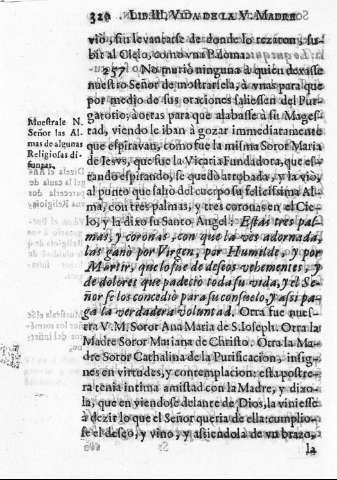 320 LIB. III. VIDA DE LA V. MADRE
viò, sin levantarse de donde lo rezaron, su-
bir al Cielo, como vna Paloma.
257 No muriò ninguna à quien dexasse
nuestro Señor de mostrarsela, à vnas para que
por medio de sus oraciones saliessen del Pur-
gatorio, à otras para que alabasse à su Mages-
tad, viendo le iban à gozar immediatamente
que espiravan, como fue la misma Soror Maria
de Iesvs, que fue la Vicaria Fundadora, que es-
tando espirando, se quedò arrobada, y la viò,
al punto que saliò del cuerpo su felicissima Al-
ma, con tres palmas, y tres coronas en el Cie-
lo, y la dixo su Santo Angel: Estas tres pal-
mas, y coronas, con que la vès adornada,
las ganò por Virgen, por Humilde, y por
Martir, que lo fue de deseos vehementes, y
de dolores que padeciò toda su vida, y el Se-
ñor se los concediò para su consuelo, y assi pa-
ga la verdadera voluntad. Otra fue nues-
tra V. M. Soror Ana Maria de S. Ioseph. Otra la
Madre Soror Mariana de Christo. Otra la Ma-
dre Soror Cathalina de la Purificacion, insig-
nes en virtudes, y contemplacion: esta postre-
ra tenia intima amistad con la Madre, y dixo-
la, que en viendose delante de Dios, la viniesse
à dezir lo que el Señor queria de ella: cumplio-
se el deseo, y vino, y assiendola de vn brazo,
la
Muestrale N.
Señor las Al-
mas de algunas
Religiosas di-
funtas.